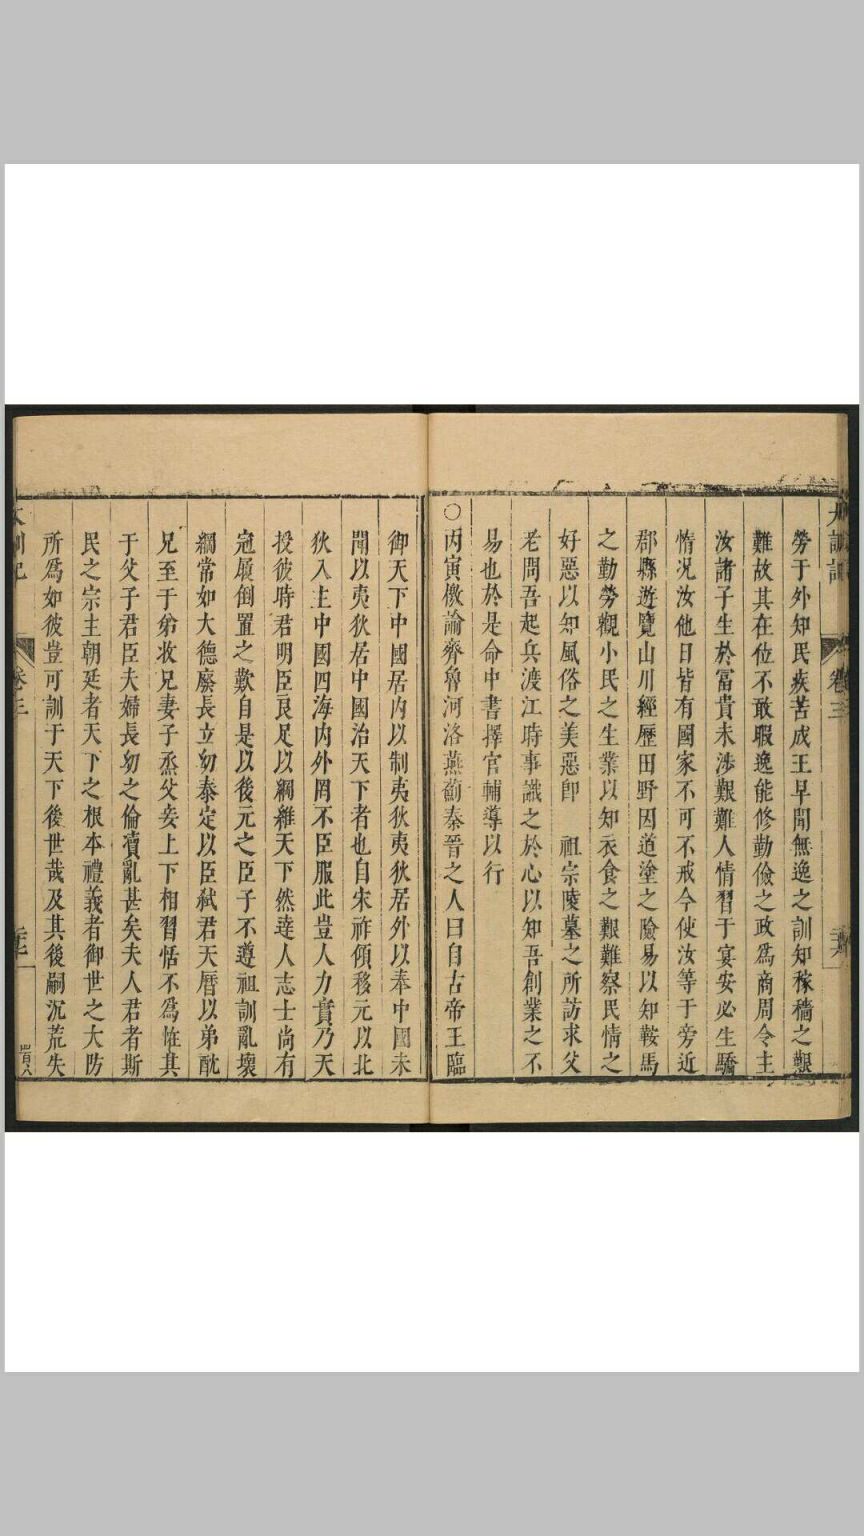 大訓記
卷三
勞于外知民疾苦成王早聞無逸之訓知稼穡之艱
難故其在位不敢暇逸能修勤儉之政爲商周令主
汝諸子生於富貴未涉艱難人情習于宴安必生驕
惰况汝他日皆有國家不可不戒今使汝等于旁近
郡縣遊覽山川經歷田野因道塗之險易以知鞍馬
之勤勞觀小民之生業以知衣食之艱難察民情之
好惡以知風俗之美惡卽 祖宗陵墓之所訪求父
老問吾起兵渡江時事識之於心以知吾創業之不
易也於是命中書擇官輔導以行
○丙寅檄諭齊魯河洛燕薊秦晉之人曰自古帝王臨
御天下中國居内以制夷狄夷狄居外以奉中國未
聞以夷狄居中國治天下者也自宋祚傾移元以北
狄入主中國四海内外罔不臣服此豈人力實乃天
授彼時君明臣良足以綱維天下然達人志士尚有
冠履倒置之歎自是以後元之臣子不遵祖訓亂壞
綱常如大德廢長立幼泰定以臣弑君天曆以弟酖
兄至于弟收兄妻子烝父妾上下相習恬不爲恠其
于父子君臣夫婦長幼之倫瀆亂甚矣夫人君者斯
民之宗主朝廷者天下之根本禮義者御世之大防
所爲如彼豈可訓于天下後世哉及其後嗣沉荒失
大訓記
卷三